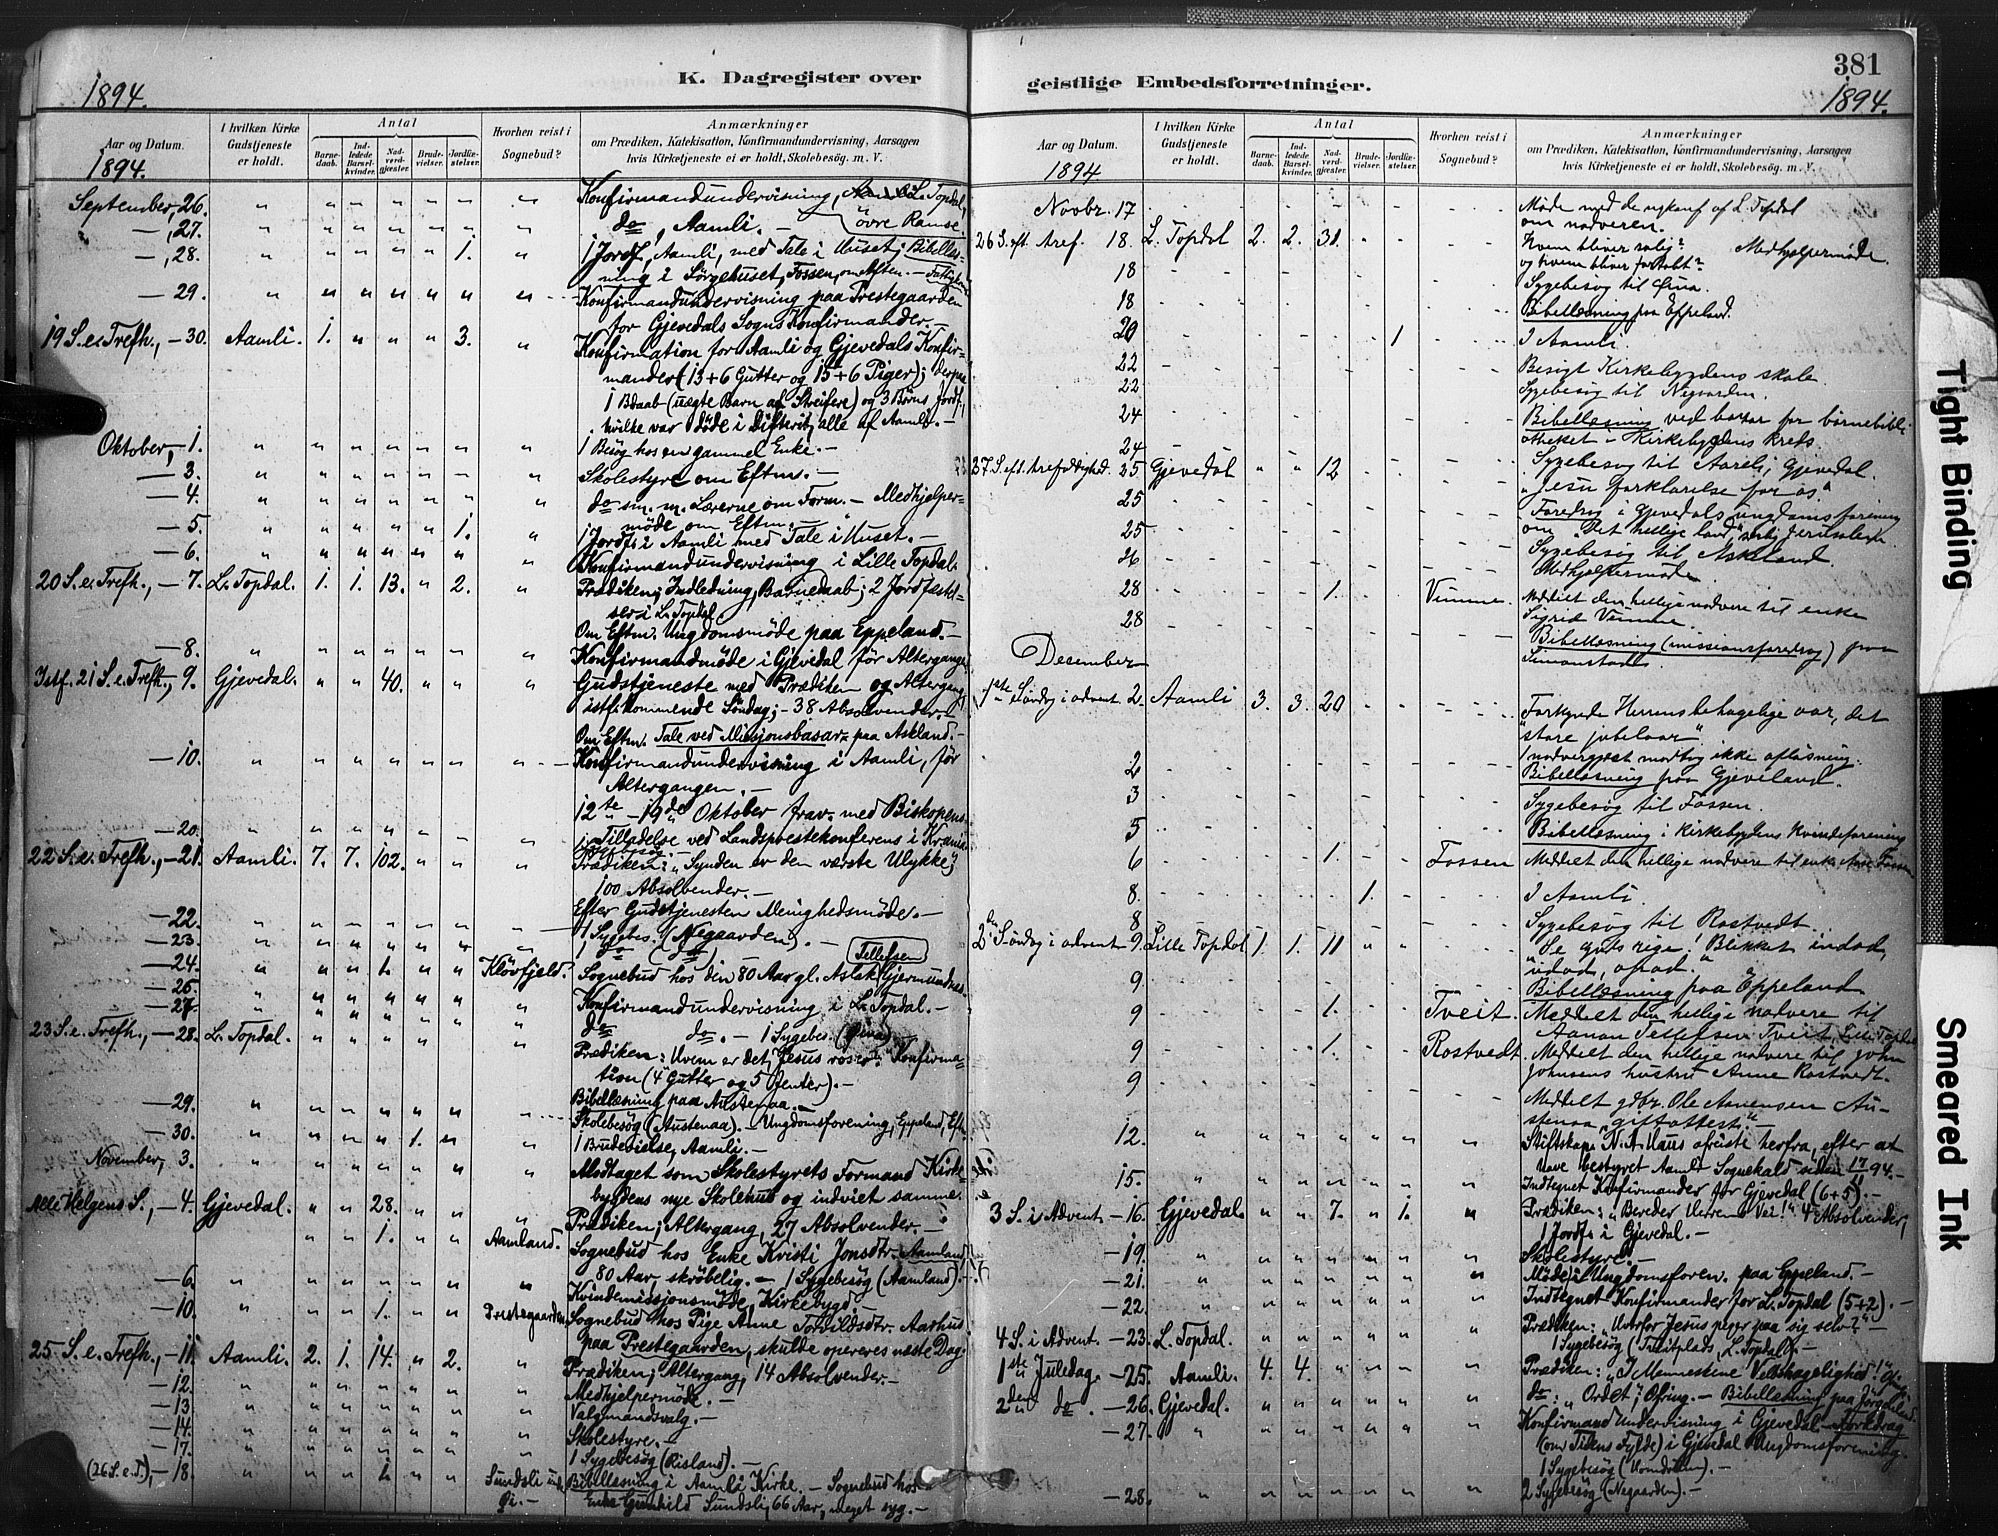 1894.
K. Dagregister over
Aar og Datum.
1894.
I hvilken Kirke Gudstjeneste er holdt.
Antal
Barnedaab.
Indledede Barselkvinder.
Nadverdgjæster.
Brudevielser.
Jordfæstelser.
Hvorhen reist i Sognebud?
Anmærkninger
om Prædiken, Katekisation, Konfirmandundervisning, Aarsagen
hvis Kirketjeneste ei er holdt, Skolebesøg. m. V.
September, 26. " " " " " " " Konfirmandundervisning, L. Topdal,
—, 27. " " " " " " " do, Aamli. — övre Ramse.
—, 28. " " " " " 1. " 1 Jordf., Aamli, med Tale i Huset; Bibellæsning
i Sörgehuset, Fossen, om Aften. —
— 29. " " " " " " " Konfirmandundervisning paa Prestegaarden
for Gjevedals Sogns Konfirmander. —
19 S. e. Trefh., — 30. Aamli. 1. " " " 3. " Konfirmation for Aamli og Gjevedals Konfirmander
(13+6 Gutter og 15+6 Piger); derpaa
1 Bdaab (uægte Barn af Streifere) og 3 Börns Jordf.,
hvilke var döde i Difterit, alle af Aamli. —
Oktober, — 1. " " " " " " " 1 Besög hos en gammel Enke. —
— 3. " " " " " " " Skolestyre om Eftm. —
— 4. " " " " " " " do sm. m. Lærerne om Form. — Medhjelpermöde
om Eftm. —
— 5. " " " " " 1. " 1 Jordf. i Aamli med Tale i Huset. —
— 6. " " " " " " " Konfirmandundervisning i Lille Topdal.
20 S. e. Trefh., — 7. L. Topdal. 1. 1. 13. " 2. " Prædiken; Indledning, Barnedaab; 2 Jordfæstelser
i L. Topdal.
Om Eftm. Ungdomsmöde paa Eppeland. —
— 8. " " " " " " " Konfirmandmöde i Gjevedal för Altergangen
Istf. 21 S. e. Trefh., 9. Gjevedal. " " 40. " " " Gudstjeneste med Prædiken og Altergang,
istf. kommende Söndag; — 38 Absolvender. —
Om Eftm. Tale ved Missjonsbasar paa Askland. —
— 10. " " " " " " " Konfirmandundervisning i Aamli, för
Altergangen. —
12te — 19de Oktober frav. med Biskopens
Tilladelse ved Landsprestekonferens i Kr.ania
— 20. " " " " " " "
22 S. e. Trefh., — 21. Aamli. 7. 7. 102. " " " Prædiken: „Synden er den værste Ulykke";
100 Absolvender. —
Efter Gudstjenesten Menighedsmöde. —
— 22. " " " " " " " 1 Sygebes. (Negaarden). —
— 23. " " " " " " " 1 do (do) —
— 24. " " " 1. " " Klövfjeld. Sognebud hos den 80 Aar gl. Aslak Tellefsen
— 26 " " " " " " " Konfirmandundervisning i L. Topdal. —
— 27. " " " " " " " do do. — 1 Sygebes.
23 S. e. Trefh., — 28. L. Topdal. " " " " " " Prædiken: Hvem er det, Jesus roser? Konfirmation
(4 Gutter og 5 Jenter). —
Bibellæsning paa Austenaa. —
— 29. " " " " " " Skolebesög (Austenaa). — Ungdomsforening, Eppeland, Eft.
— 30. " " " " 1. " " 1 Brudevielse, Aamli. —
November, 3. " " " " " " " Modtaget som Skolestyrets Formand Kirkebygdens
nye Skolehus og indviet samme.
Alle Helgens S., — 4. Gjevedal. " " 28. " " " Prædiken; Altergang, 27 Absolvender. —
" " 1. " " Aamland. Sognebud hos Enke Kristi Jonsdtr. Aamland,
80 Aar, skröbelig. — 1 Sygebesög (Aamland). —
— 6. " " " " " " " Kvindemissjonsmöde, Kirkebygd. —
— 10. " " " 1. " " Prestegaarden. Sognebud hos Pige Anne Torvildsdtr. Aarhus
paa Prestegaarden, skulde opereres næste Dag.
25 S. e. Trefh., — 11. Aamli. 2. 1. 14. " 2. " Prædiken; Altergang, 14 Absolvender. —
— 12. " " " " " " " Medhjelpermöde. —
— 13. " " " " " " " Valgmandsvalg. —
— 14. " " " " " " " Skolestyre. —
— 17. " " " " " " " 1 Sygebesög (Risland). —
(26 S. e. T.), — 18. " " " 1. " " Sundsli Bibellæsning i Aamli Kirke. — Sognebud hos
Enke Gunhild Sundsli, 66 Aar, meget syg. —
381
geistlige Embedsforretninger.
1894.
Aar og Datum.
1894
I hvilken Kirke Gudstjeneste er holdt.
Antal
Barnedaab.
Indledede Barselkvinder.
Nadverdgjæster.
Brudevielser.
Jordfæstelser.
Hvorhen reist i Sognebud?
Anmærkninger
om Prædiken, Katekisation, Konfirmandundervisning, Aarsagen
hvis Kirketjeneste ei er holdt, Skolebesøg. m. V.
Novbr. 17 Møde med de nykonf. af L. Topdal
om nadveren.
26 S. eft. tref. 18. L. Topdal 2. 2. 31. Hvem bliver salig?
og hvem bliver fortabt? Medhjælpermøde.
18 Sygebesøg til Øina.
18 Bibellæsning paa Eppeland.
20 1 I Aamli.
22 Besigt. Kirkebygdens skole
22 Sygebesøg til Negaarden.
24 Bibellæsning ved basar for børnebibliotheket
24 i Kirkebygdens kreds.
27 S. eft. trefoldighed. 25 Gjevedal " " 12 Sygebesøg til Aareli, Gjevedal.
„Jesu forklarelse for os."
25 Foredrag i Gjevedals ungdomsforening
25 om „Det hellige land", Jerusalem.
Sygebesøg til Askeland.
26 Medhjælpermøde.
28 1. Vimme. Meddelt den hellige nadvere til enke
Sigrid Vimme.
28 Bibellæsning (missionsforedrag) paa
Simonstad.
December
1ste Søndag i advent 2. Aamli 3. 3. 20 „Forkynde Herrens behagelige aar, det
store jubelaar"
1 nadvergjæst modtog ikke afløsning.
2 Bibellæsning paa Gjeviland.
3 Sygebesøg til Fossen.
5 Bibellæsning i Kirkebygdens kvindeforening
6 1. Fossen Meddelt den hellige nadvere til enke Fossen
8. 1. I Aamli.
8 Sygebesøg til Rostvedt.
2den Søndag i advent 9. Lille Topdal 1. 1. 11 „Se guds rige! Blikket indad,
udad, opad."
9 Bibellæsning paa Eppeland
9 1. Tveit. Meddelt den hellige nadvere til
Aanon Tellefsen Tveit, Lille Topdal
9 1. Rostvedt Meddelt den hellige nadvere til John
Johnsens hustru Anne Rostvedt.
9 Meddelt gdbr. Ole Aanensen Austenaa
„giftattest". —
12. " " " " " " " Stiftskap. N. A. Huus afreiste herfra, efter at
have bestyret Aamli Sognekald siden 17/11 94. —
15. " " " " " " " Indtegnet Konfirmander for Gjevedal (6+5). —
3 S. i Advent — 16. Gjevedal. " " 7. " 1. " Prædiken: „Bereder Herrens Vei!" 4 Absolvender,
1 Jordf. i Gjevedal. —
— 19. " " " " " " " Skolestyre. —
— 21. " " " " " " " Möde i Ungdomsforen. paa Eppeland. —
— 22. " " " " " " " Indtegnet Konfirmander for L. Topdal (5+2). —
4 S. i Advent — 23. L. Topdal. " " " " " " Prædiken: „Hvorfor Jesus peger paa sig selv?"
1 Sygebesög (Tveitplads, L. Topdal). —
1ste Juledag — 25. Aamli. 4. 4. " " " " Prædiken: „I Menneskene Velbehagelighed!"
2den do — 26. Gjevedal. " " " " " " do: „Ordet"; Ofring. — Bibellæsning paa
— 27. " " " " " " " Konfirmand Undervisning i Gjevedal. Foredrag
(om Tidens Fylde) i Gjevedal Ungdomsforening.
1 Sygebesög —
— 28. " " " " " " " 2 Sygebesög (Negaarden). —
Tight Binding
Smeared Ink